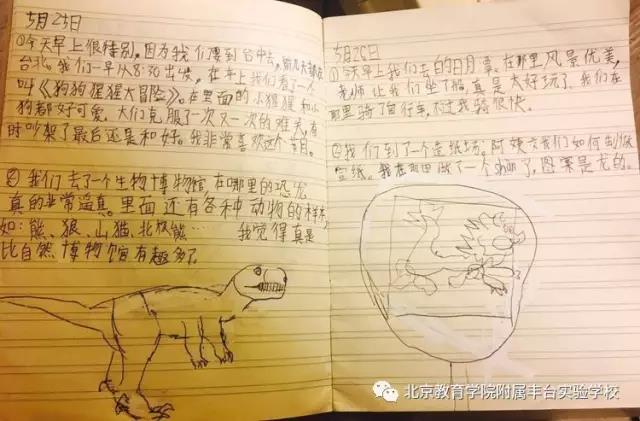 5月25日
①今天早上很特别。因为我们要到台中去,前几天都在
台北。我们一早从8:30出发,在车上我们看了一个
叫《狗狗猩猩大冒险》。在里面的小猩猩和小
狗都好可爱,大们克服了一次又一次的难关,有
时吵架了最后还是和好。我非常喜欢这个节目。
②我们去了个生物博物馆,在哪里的恐龙
真的非常逼真。里面还有各种动物的样本,
如:熊、狼、山猫、北极熊… 我觉得真是
比自然博物馆有趣多了
5月26日
①今天早上我们去的日月潭。在那里风景优美,
老师让我们坐了船,真是太好玩了。我们在
那里骑了自行车,不过我骑很快。
②我们到了一个造纸坊。阿姨交我们如何制做
宣纸。我在那里做了一个shan了,图案是龙的。
北京教育学院附属丰台实验学校